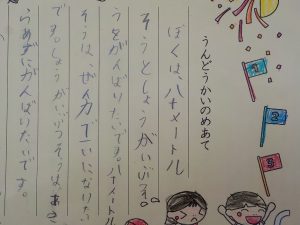 うんどうかいのめあて
ぼくは、八十メートル
そうとしょうがいぶつそ
うをがんばりたいです。八十メートル
そうは、ぜん力で一いになりたい
です。しょうがいぶつそうは、あき
らめずにがんばりたいです。
1
2
3